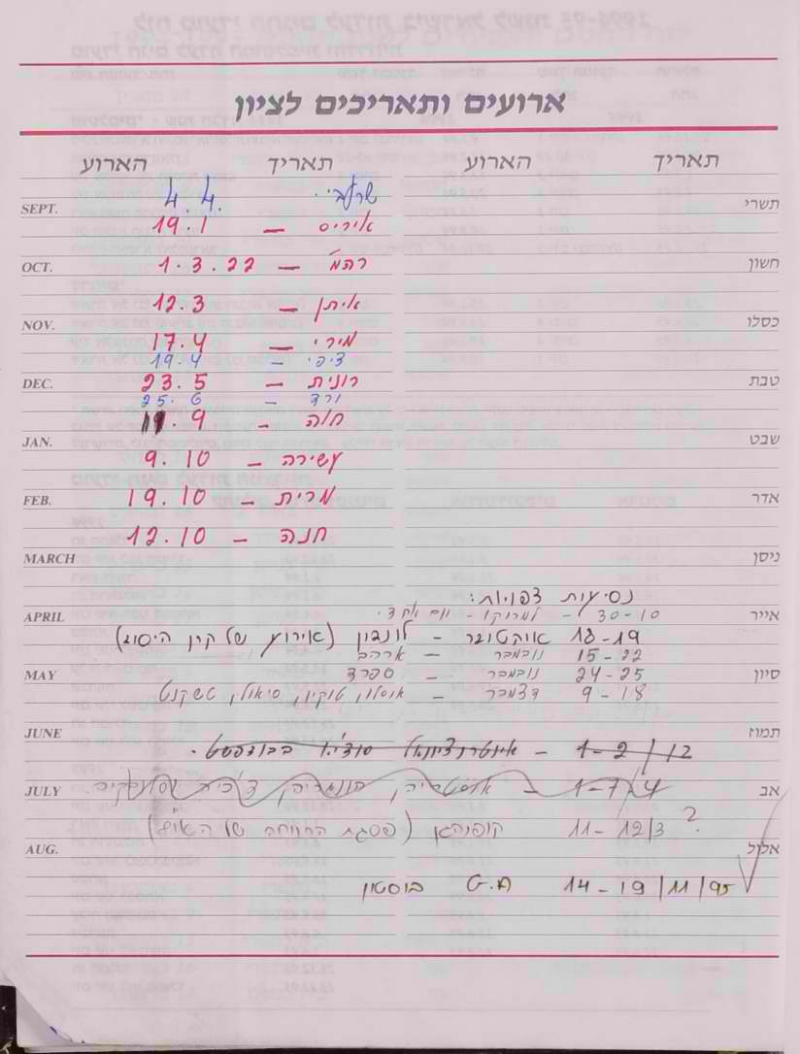 ארועים ותאריכים לציון
תאריך הארוע תאריך הארוע
תשרי SEPT.
4.4.
איריס – 19.1
חשון OCT.
רהמ – 1.3.22
איתן – 12.3
כסלו NOV.
מירי – 17.4
ציפי – 19.4
טבת DEC.
רונית – 23.5
ורד – 25.6
חוה – 19.9
שבט JAN.
עשירה – 9.10
אדר FEB.
מרית – 19.10
חנה – 12.10
ניסן MARCH
נסיעות צפויות:
אייר APRIL
30-10 – למרוקו – יום אחד.
18-19 אוקטובר – לונדון (אירוע של קרן היסוד)
15-22 נובמבר – ארהב
סיון MAY
24-25 נובמבר – ספרד
9-18 דצמבר – אוסלו, טוקיו, סיאול, טשקנט
תמוז JUNE
1-2/12 – אינטרנציונאל סוצ' בבודפשט.
אב JULY
1-7/4 – אוסטריה, הונגריה, צ'כיה
11-12/3 ? קופנהאגן (פסגת הרווחה של האו"ם)
אלול AUG.
14-19/11/95 G.A בוסטון